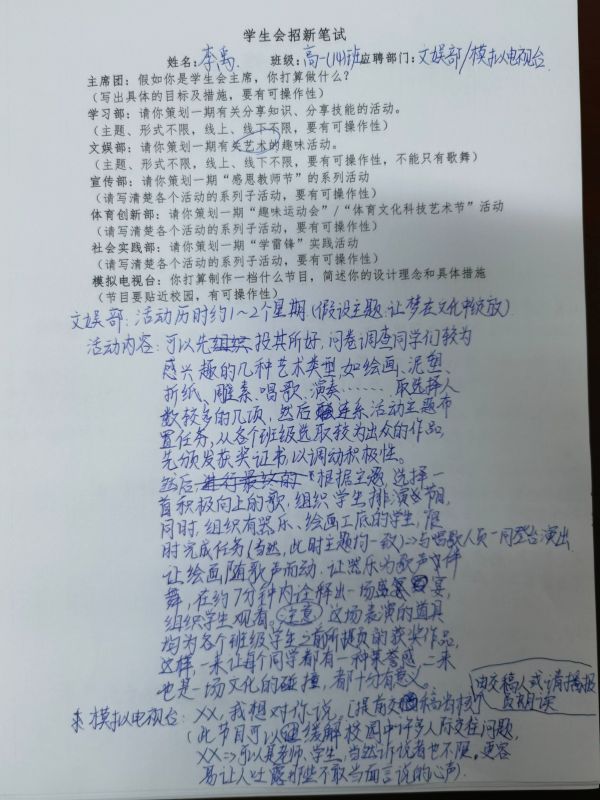 学生会招新笔试
姓名：李禹 班级：高一(14)班 应聘部门：文娱部/模拟电视台
主席团：假如你是学生会主席，你打算做什么？
（写出具体的目标及措施，要有可操作性）
学习部：请你策划一期有关分享知识、分享技能的活动。
（主题、形式不限，线上、线下不限，要有可操作性）
文娱部：请你策划一期有关艺术的趣味活动。
（主题、形式不限，线上、线下不限，要有可操作性，不能只有歌舞）
宣传部：请你策划一期“感恩教师节”的系列活动
（请写清楚各个活动的系列子活动，要有可操作性）
体育创新部：请你策划一期“趣味运动会”/“体育文化科技艺术节”活动
（请写清楚各个活动的系列子活动，要有可操作性）
社会实践部：请你策划一期“学雷锋”实践活动
（请写清楚各个活动的系列子活动，要有可操作性）
模拟电视台：你打算制作一档什么节目，简述你的设计理念和具体措施
（节目要贴近校园，有可操作性）
文娱部：活动历时约1~2个星期（假设主题：让梦在文化中绽放）
活动内容：可以先组织投其所好，问卷调查同学们较为
感兴趣的几种艺术类型，如绘画、泥塑、
折纸、雕素、唱歌、演奏…… 取选择人
数较多的几项，然后联系活动主题布
置任务，从各个班级选取较为出众的作品，
先颁发获奖证书，以调动积极性。
然后，进行最终的根据主题，选择一
首积极向上的歌，组织学生排演
同时，组织有器乐、绘画工底的学生，限
时完成任务（当然，此时主题均一致）⇒与唱歌人员一同登台演出
让绘画随歌声而动，让器乐为歌声伴
舞，在约7分钟内诠释出一场盛宴，
组织学生观看。注意 这场表演的道具
均为各个班级学生之前所提交的获奖作品，
这样，一来让每个同学都有一种荣誉感，二来
也是一场文化的碰撞，都十分有意义。
模拟电视台：XX，我想对你说，[提前交稿审核]
由交稿人或请播报员朗读
（此节目可以缓解校园中许多人际交往问题，
XX⇒可以是老师、学生，当然诉说者也不限。更容
易让人吐露那些不敢当面言说的心声）.